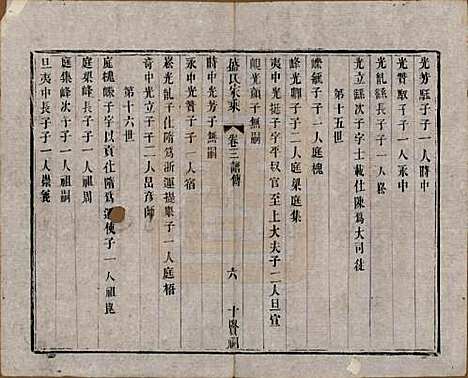 光芳馭子子一人時中
光賢馭子子一人永中
光亂繇子子一人崧
光立繇次子字士載仕陳爲大司徒
第十五世
巘纁子子一人庭槐
峰光驛子子二人庭渠庭集
夷中光挺子字平以官至上大夫子二人旦宣
峴光頗子無嗣
盛氏家乘
卷三譜傳
六
十賢祠
時中光芳子無嗣
永中光賢子子一人宿
崧光亂子仕隋爲浙運提舉子一人庭梧
奇中光立子子二人昌彥師
第十六世
庭槐巘子字以貢仕隋爲運使子一人祖崑
庭渠峰長子子一人祖周
庭集峰次子子一人祖嗣
旦夷中長子子一人崇義